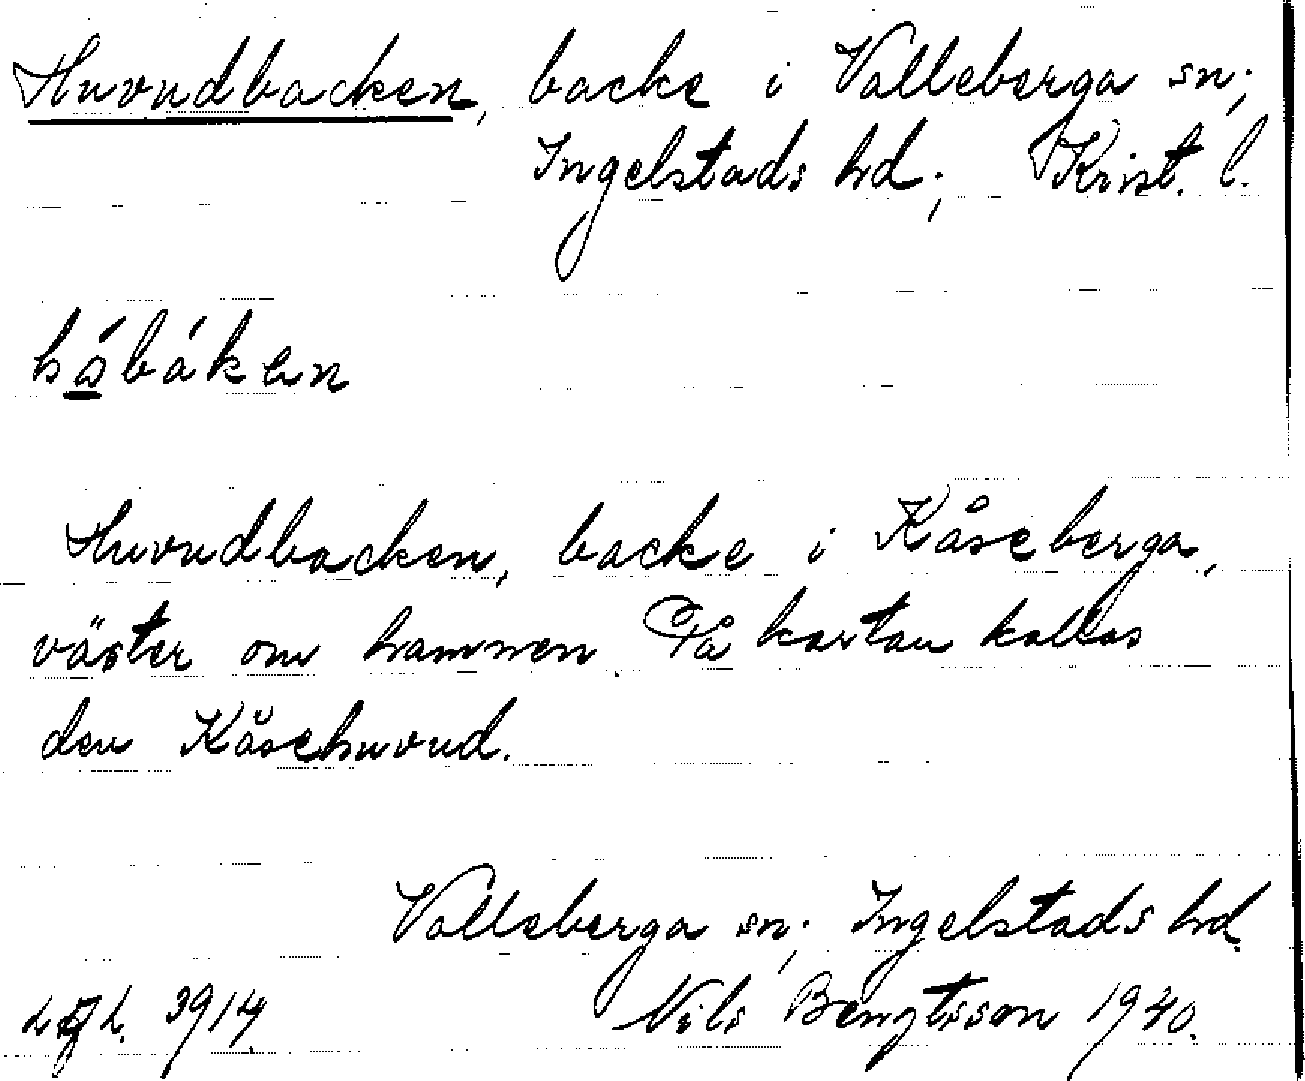 Huvudbacken, backe i Valleberga sn;
Ingelstads hd; Krist. l.
håbákan
Huvudbacken, backe i Kåseberga,
väster om hamnen. På kartan kallas
den Kåsehuvud.
Valleberga sn; Ingelstads hd.
3914. Nils Bengtsson 1940.